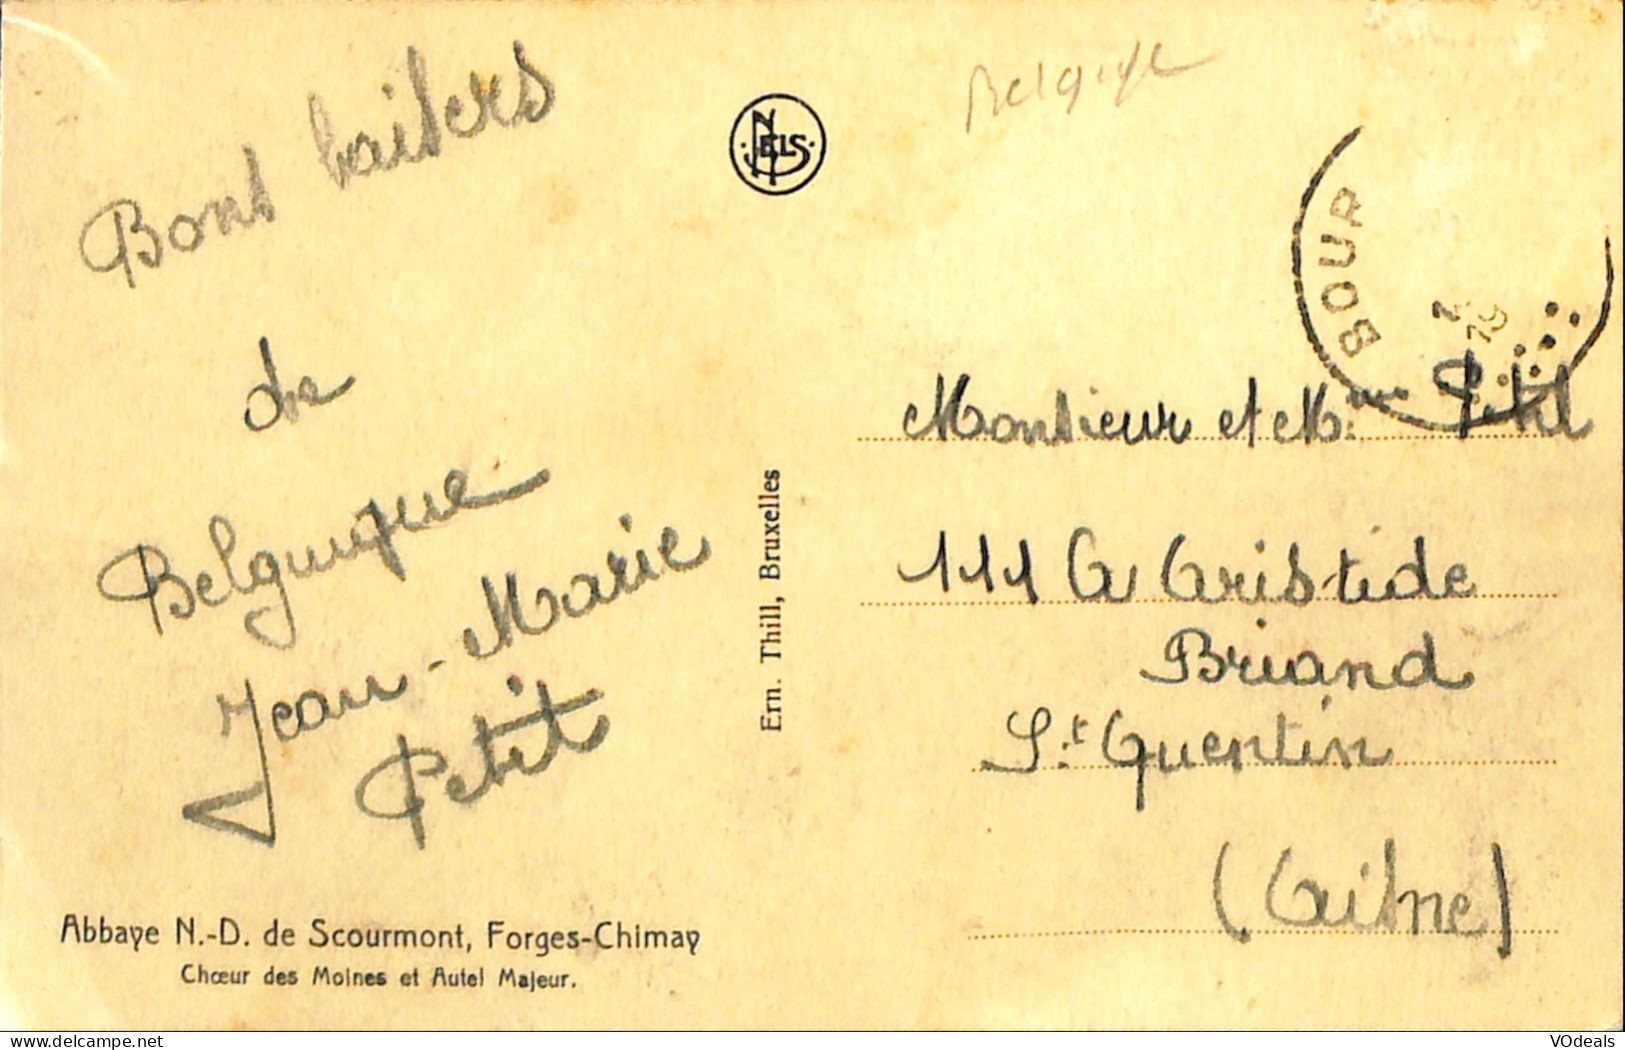 Bons baisers
de
Belguique
Jean-Marie
Petit
Abbaye N.-D. de Scourmont, Forges-Chimay
Chœur des Moines et Autel Majeur.
NELS
Ern. Thill, Bruxelles
Belgique
BOUR
19
Monsieur et M.me Petit
111 A Aristide
Briand
S.t Quentin
(Aisne)
delcampe.net
VOdeals